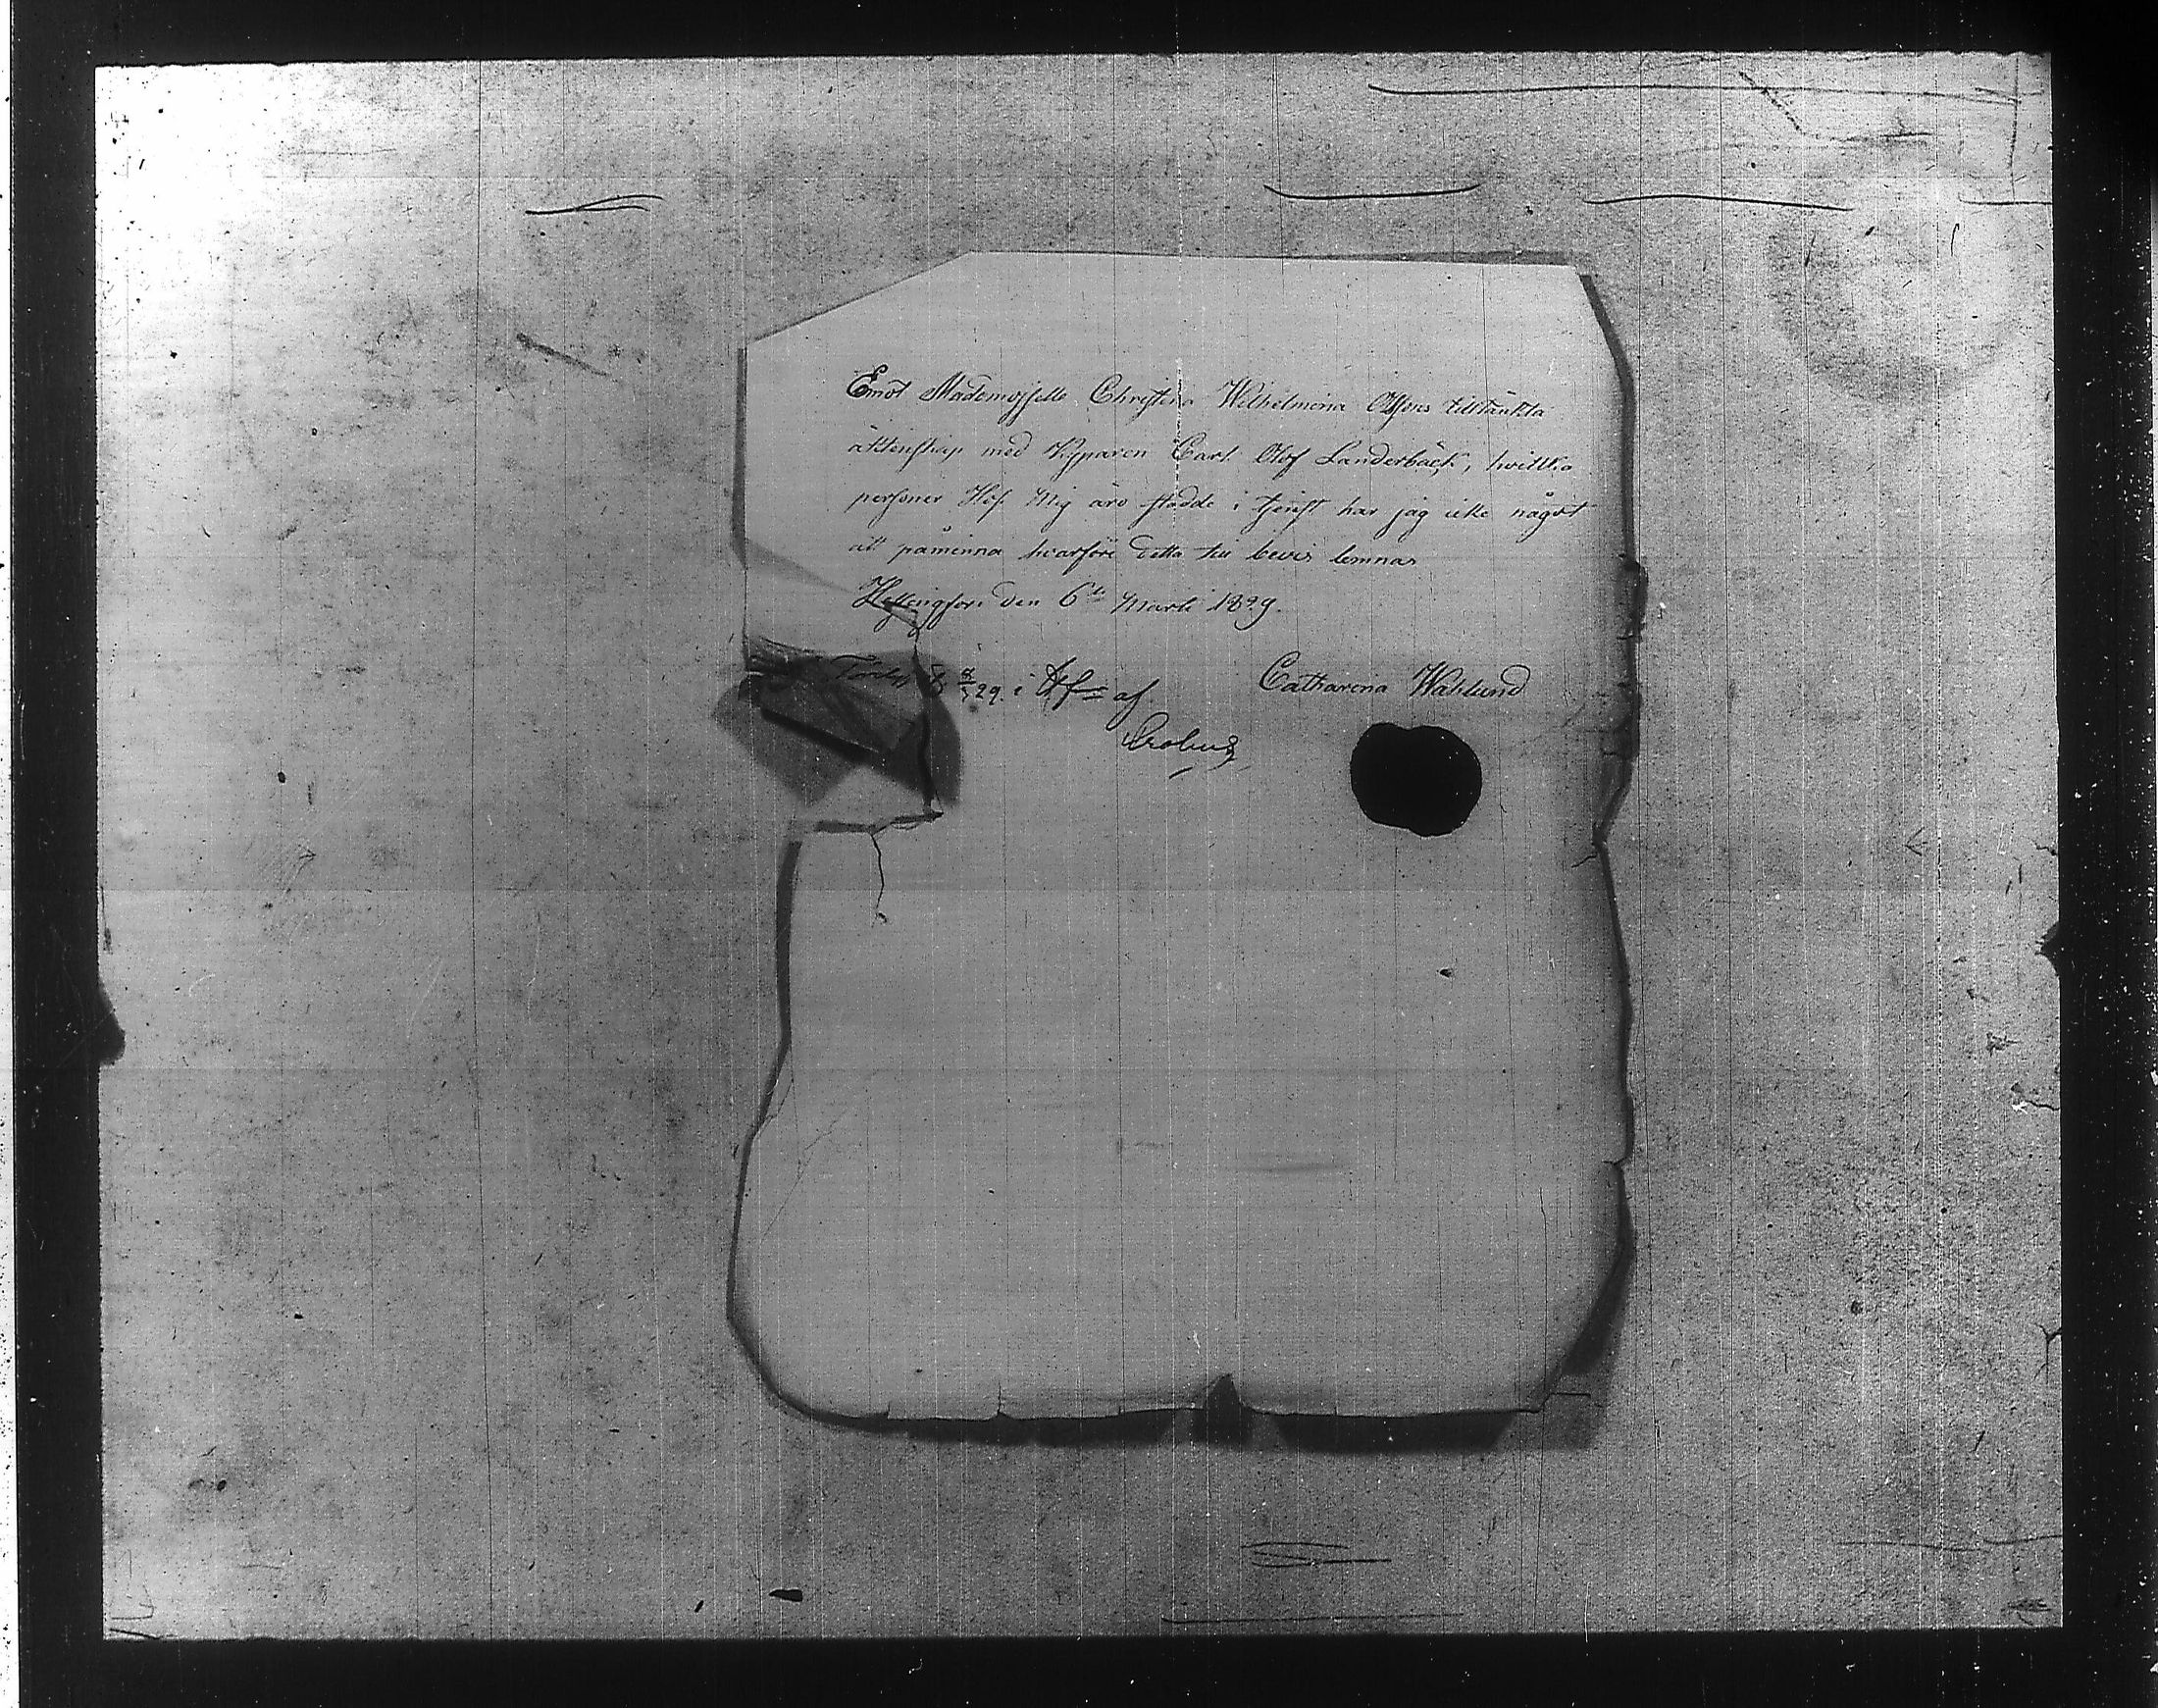 Emot Mademoiselle Christina Wilhelmina Olssons tilltänkta
äktenskap med Kyparen Carl Olof Landerbäck, hwilka
personer Hos Mig äro stadde i tjenst har jag icke något
att påminna hwarföre detta till bevis lemnas
Helsingfors den 6te Martii 1829.
Catharina Wahlund
29. i af